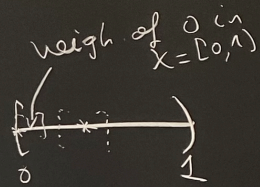 neigh. of 0 in
X = [0,1)
0
1